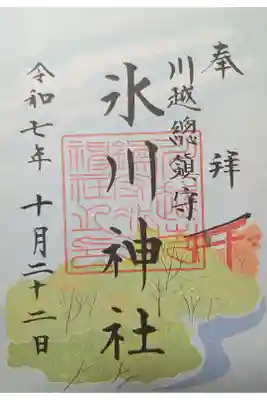 奉拝
川越總鎮守
氷川神社
令和七年十月二十二日